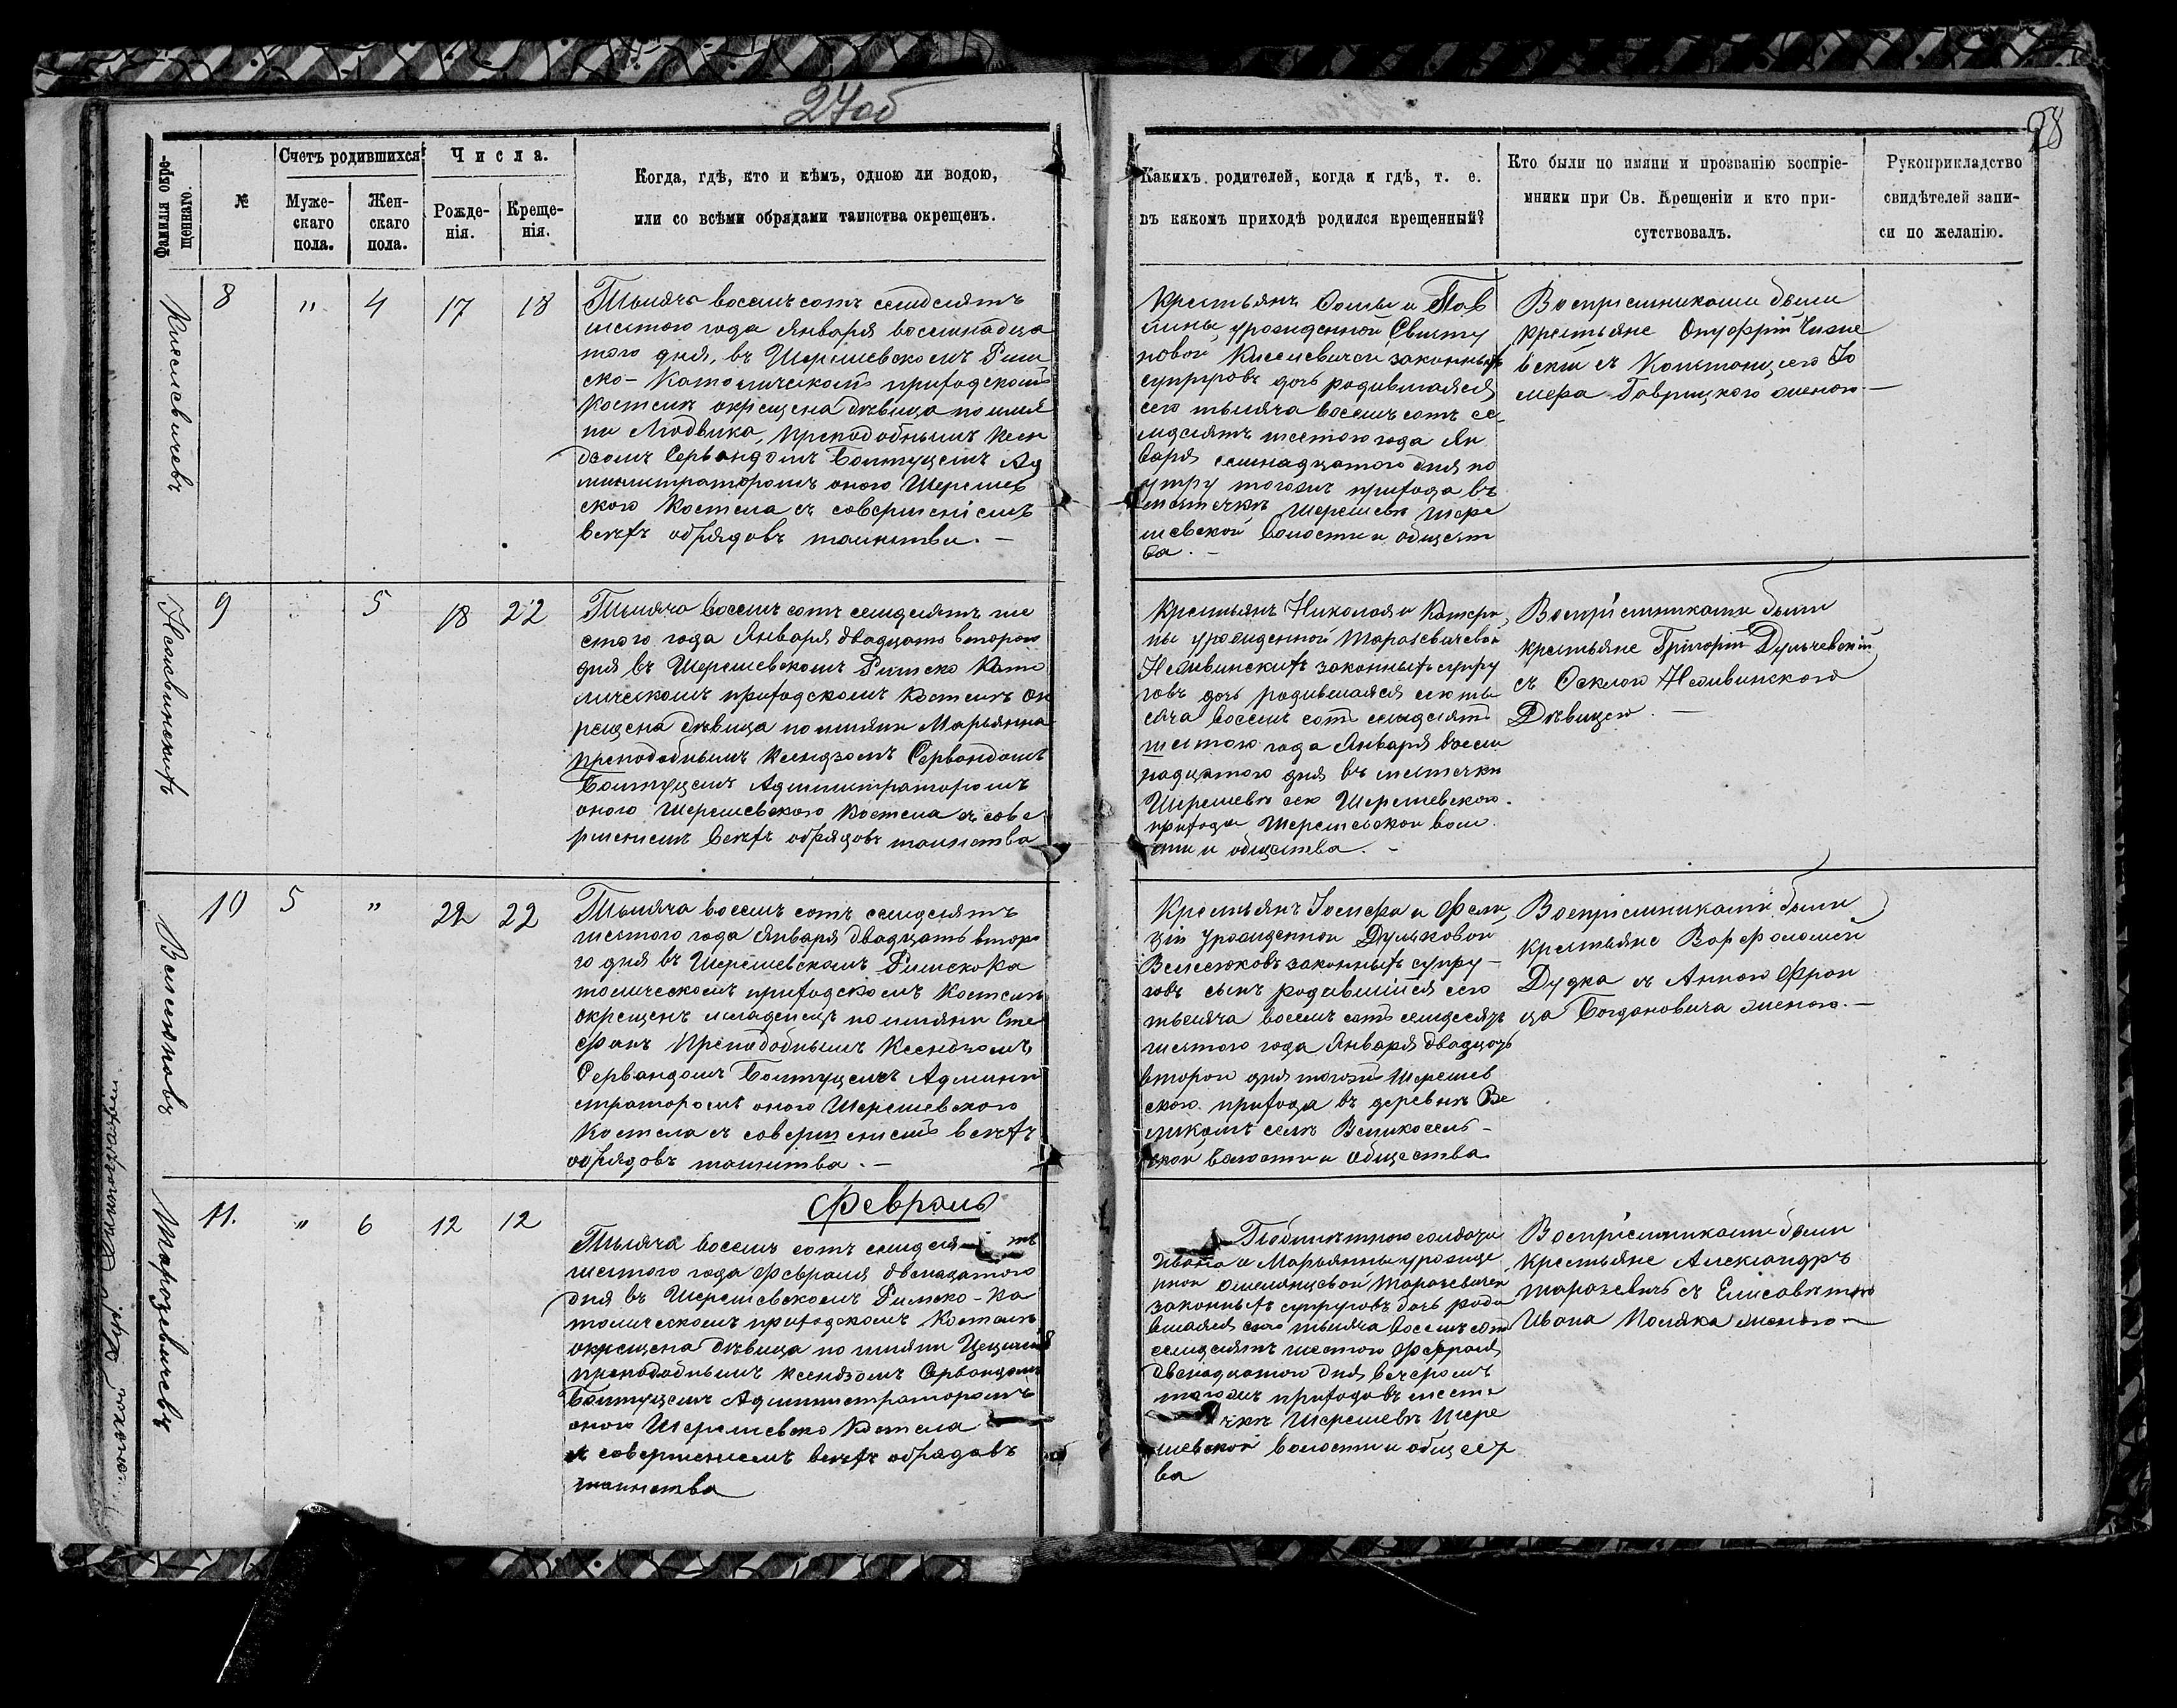 27об
28
Фамилія окре-
щеннаго.
№
Счетъ родившихся
Муже-
скаго
пола.
Жен-
скаго
пола.
Числа.
Рожде-
нія.
Креще-
нія.
Когда, гдѣ, кто и кѣмъ, одною ли водою,
или со всѣми обрядами таинства окрещенъ.
Какихъ родителей, когда и гдѣ, т. е.
въ какомъ приходѣ родился крещенный?
Кто были по имяни и прозванію воспріе-
мники при Св. Крещеніи и кто при-
сутствовалъ.
Рукоприкладство
свидѣтелей запи-
си по желанію.
Киселевичевъ
8 " 4 17 18
Тысяча восемь сотъ семдсіятъ
шестого года Января восемнадца
того дня, въ Шерешевскомъ Рим
ско-Католическомъ приходскомъ
Костелѣ окрещена дѣвица по имя
ни Людвика, преподобнымъ Ксен
дзомъ Сервандомъ Болтуцемъ Ад
министраторомъ оного Шерешев
ского Костела съ совершеніемъ
всѣхъ обрядовъ таинства. —
Крестьянъ Фомы и Пав
лины урожденной
новой Киселевичей законныхъ
супруговъ дочь родившаяся
сего тысяча восемь сотъ се-
мдсіятъ шестого года Ян
варя семнадцатого дня по
утру тогожъ прихода въ
мѣстечкѣ Шерешевѣ Шере
шевской Волости и общест
ва. —
Воспріемниками были
крестьяне Онуфрій
съ Констанціею Іо
сифа Гаврицкого женою —
9 " 5 18 22
Тысяча восемь сотъ семдсіятъ ше
стого года Января двадцать второго
дня въ Шерешевскомъ Римско Като
лическомъ приходскомъ Костелѣ ок
рещена дѣвица по имяни Марьянна
преподобнымъ Ксендзомъ Сервандомъ
Болтуцемъ Администраторомъ
оного Шерешевского Костела съ сове
ршеніемъ всѣхъ обрядовъ таинства
Крестьянъ Николая и Катери
ны урожденной Тарасевичевой
законныхъ супру
говъ дочь родившаяся сего ты
сяча восемь сотъ семдсіятъ
шестого года Января восем
надцатого дня въ мѣстечкѣ
Шерешевѣ сего Шерешевского
прихода Шерешевской воло
сти и общества. -
Воспріемниками были
крестьяне Григорій Дульчевскій
съ
Дѣвицею. —
10 5 " 22 22
Тысяча восемь сотъ семдсіятъ
шестого года Января двадцать второ
го дня въ Шерешевскомъ РимскоКа
толическомъ приходскомъ Костелѣ
окрещенъ младенецъ по имяни Сте
фанъ Преподобнымъ Ксендзомъ
Сервандомъ Болтуцемъ Админи
страторомъ оного Шерешевского
Костела съ совершеніемъ всѣхъ
обрядовъ таинства. —
Крестьянъ Іосифа и Фели
ціи урожденной Дульковой
законныхъ супру-
говъ сынъ родившійся сего
тысяча восемь сотъ семдесятъ
шестого года Января двадцать
второго дня тогожъ Шерешев
ского прихода въ деревнѣ Ве
ликомъ селѣ Великосель-
ской волости и общества
Воспріемниками были
крестьяне Варфоломей
Дудка съ Анною Фран
ца Богдановича женою. —
Тарасевичевъ
11. " 6 12 12
Февраль
Тысяча восемь сотъ семдсіятъ
шестого года Февраля двенадцатого
дня въ Шерешевскомъ Римско-Ка
толическомъ приходскомъ Костелѣ
окрещена дѣвица по имяни Цецилія
преподобнымъ Ксендзомъ Сервандомъ
Болтуцемъ Администраторомъ
оного Шерешевско Костела
съ совершеніемъ всѣхъ обрядовъ
таинства
солдата
Ивана и Марьянны урожде
нной Тарасевичей
законныхъ супруговъ дочь роди
вшаяся сего тысяча восемь сотъ
семдсіятъ шестого Февраля
двенадцатого дня вечеромъ
тогожъ прихода въ мѣсте
чкѣ Шерешевѣ Шере
шевской волости и общест
ва
Воспріемниками были
крестьяне Александръ
Тарасевичъ съ Елисаветою
Ивана Поляка женою —